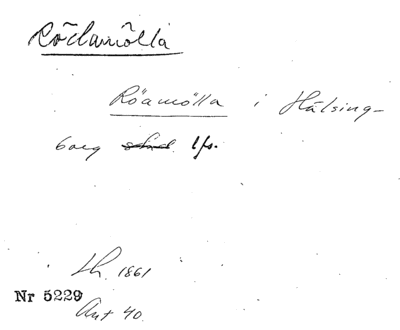 Rödamölla
Röamölla i Hälsing-
borg stad lfs.
Lh. 1861
Nr 5229
Ant 40.